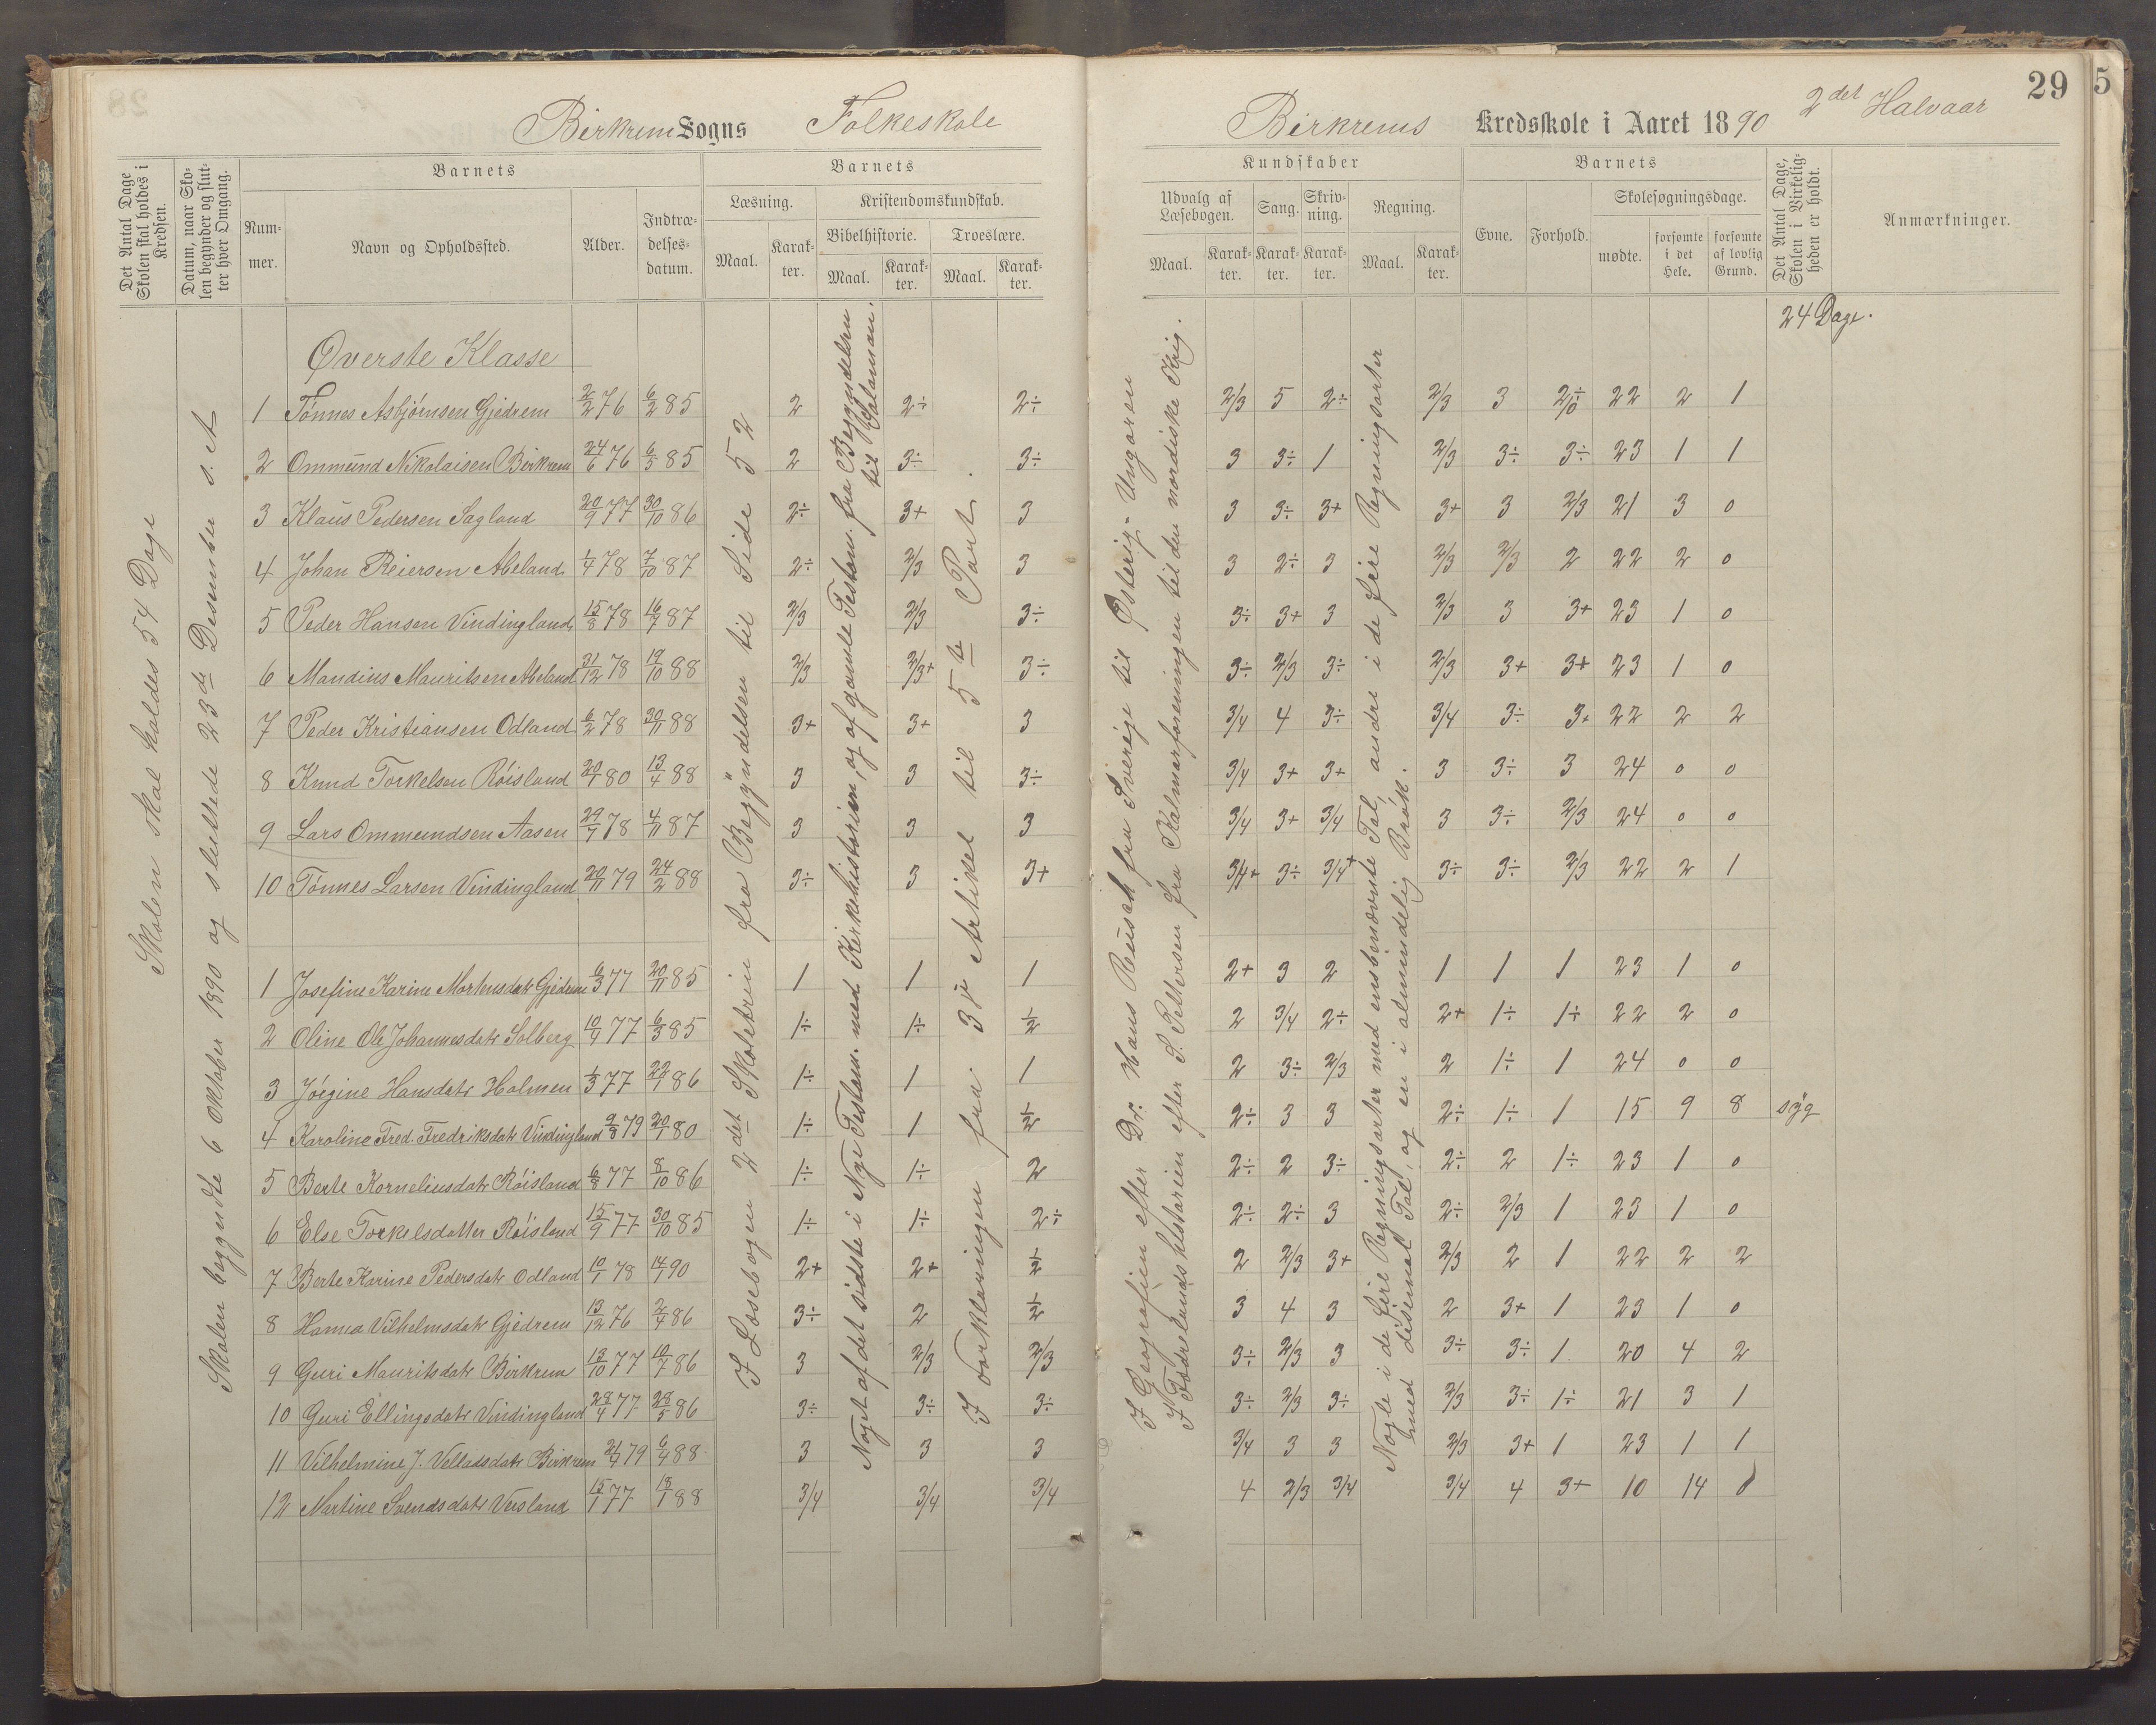 29
5
Birkrem Sogns Folkeskole
Birkrems Kredsskole i Aaret 1890 2det Halvaar
Det Antal Dage Skolen skal holdes i Kredsen.
Datum, naar Skolen begynder og slutter hver Omgang.
Barnets
Nummer.
Navn og Opholdssted.
Alder.
Indtrædelsesdatum.
Barnets
Læsning.
Maal.
Karakter.
Kristendomskundskab.
Bibelhistorie.
Maal.
Karakter.
Troeslære.
Maal.
Karakter.
Kundskaber
Udvalg af Læsebogen.
Maal.
Karakter.
Sang.
Karakter.
Skrivning.
Karakter.
Regning.
Maal.
Karakter.
Barnets
Evne.
Forhold.
Skolesøgningsdage.
mødte.
forsømte i det Hele.
forsømte af lovlig Grund.
Det Antal Dage, Skolen i Virkeligheden er holdt.
Anmærkninger.
24 Dage.
Skolen skal holdes 54 Dage
Skolen begyndte 6 oktober 1890 og sluttede 23de Desember s. A
I Læsebogen 2det Skoletrin fra Begÿndelsen til Side 52
Noget af det sidste i Nye Testam. med Kirkehistorien, og af gamle Testam. fra Begyndelsen til Salomon.
I Forklaringen fra 3je Artikel til 5te Part.
I Geografien efter Dr. Hans Reusch fra Sverige til Østerig-Ungaren
I Fædrelandshistorien efter S. Pettersen fra Kalmarforeningen til den nordiske Krig.
Nogle i de fire Regningsarter med ensbenævnte Tal, andre i de fire Regningsarter
med desimal Tal, og en i almindelig Brøk.
Øverste Klasse
1 Tønnes Asbjørnsen Gjedrem 2/2 76 6/2 85 2 2÷ 2÷ 2/3 5 2÷ 2/3 3 22 2 1
2 Ommund Nikolaisen Birkrem 24/6 76 6/3 85 2 3÷ 3÷ 3 3÷ 1 2/3 3÷ 3÷ 23 1 1
3 Klaus Pedersen Sagland 20/9 77 30/10 86 2÷ 3+ 3 3 3÷ 3+ 3+ 3 2/3 21 3 0
4 Johan Reiersen Abeland 1/4 78 7/10 87 2÷ 2/3 3 3 2÷ 3 2/3 2/3 2 22 2 0
5 Peder Hansen Vindingland 15/8 78 16/7 87 2/3 2/3 3÷ 3÷ 3+ 3 2/3 3 3+ 23 1 0
6 Mandius Mauritsen Abeland 31/12 78 19/10 88 2/3 2/3+ 3÷ 3÷ 2/3 3÷ 2/3 3+ 3+ 23 1 0
7 Peder Kristiansen Odland 6/2 78 30/11 88 3+ 3+ 3 3/4 4 3÷ 3/4 3÷ 3+ 22 2 2
8 Knud Torkelsen Røisland 20/1 80 13/4 88 3 3 3÷ 3/4 3+ 3+ 3 3÷ 3 24 0 0
9 Lars Ommundsen Aasen 29/7 78 4/11 87 3 3 3 3/4 3+ 3/4 3 3÷ 2/3 24 0 0
10 Tønnes Larsen Vindingland 20/11 79 24/2 88 3÷ 3 3+ 3/4+ 3÷ 3/4+ 3÷ 3÷ 2/3 22 2 1
1 Josefine Karine Mortensdatr Gjedrem 6/3 77 20/11 85 1 1 1 2+ 3 2 1 1 1 23 1 0
2 Oline Ole Johannesdatr Solberg 10/9 77 6/3 85 1÷ 1÷ 1/2 2 3/4 2÷ 2+ 1÷ 1÷ 22 2 0
3 Jørgine Hansdatr Holmen 1/3 77 22/1 86 1÷ 1 1 2 3÷ 2/3 2 1÷ 1 24 0 0
4 Karoline Fred. Fredriksdatr Vindingland 9/8 79 20/1 80 1÷ 1 1/2 2÷ 3 3 2÷ 1÷ 1 15 9 8 sÿg
5 Berte Korneliusdatr Røisland 6/8 77 8/10 86 1÷ 1÷ 2 2÷ 2 3÷ 2÷ 2 1÷ 23 1 0
6 Else Torkelsdatter Røisland 15/9 77 30/10 85 1÷ 1÷ 2÷ 2÷ 2÷ 3 2÷ 2/3 1 23 1 0
7 Berte Karine Pedersdatr Odland 10/1 78 14/7 90 2+ 2+ 1/2 2 2/3 3+ 2/3 2 1 22 2 2
8 Hanna Vilhelmsdatr Gjedrem 13/12 76 2/4 86 3÷ 2 1/2 3 4 3 2 3+ 1 23 1 0
9 Guri Mauritsdatr Birkrem 13/10 77 10/7 86 3 2/3 2/3 3÷ 2/3 3 3÷ 3÷ 1 20 4 2
10 Guri Ellingsdatr Vindingland 28/4 77 28/5 86 3÷ 3÷ 3÷ 3÷ 2/3 3÷ 2/3 3÷ 1÷ 21 3 1
11 Vilhelmine J. Velladsdatr Birkrem 21/4 79 6/4 88 3 3 3 3/4 3 3 2/3 3+ 1 23 1 1
12 Martine Svendsdatr Veisland 15/1 77 13/1 88 3/4 3/4 3/4 4 2/3 3/4 3/4 4 3+ 10 14